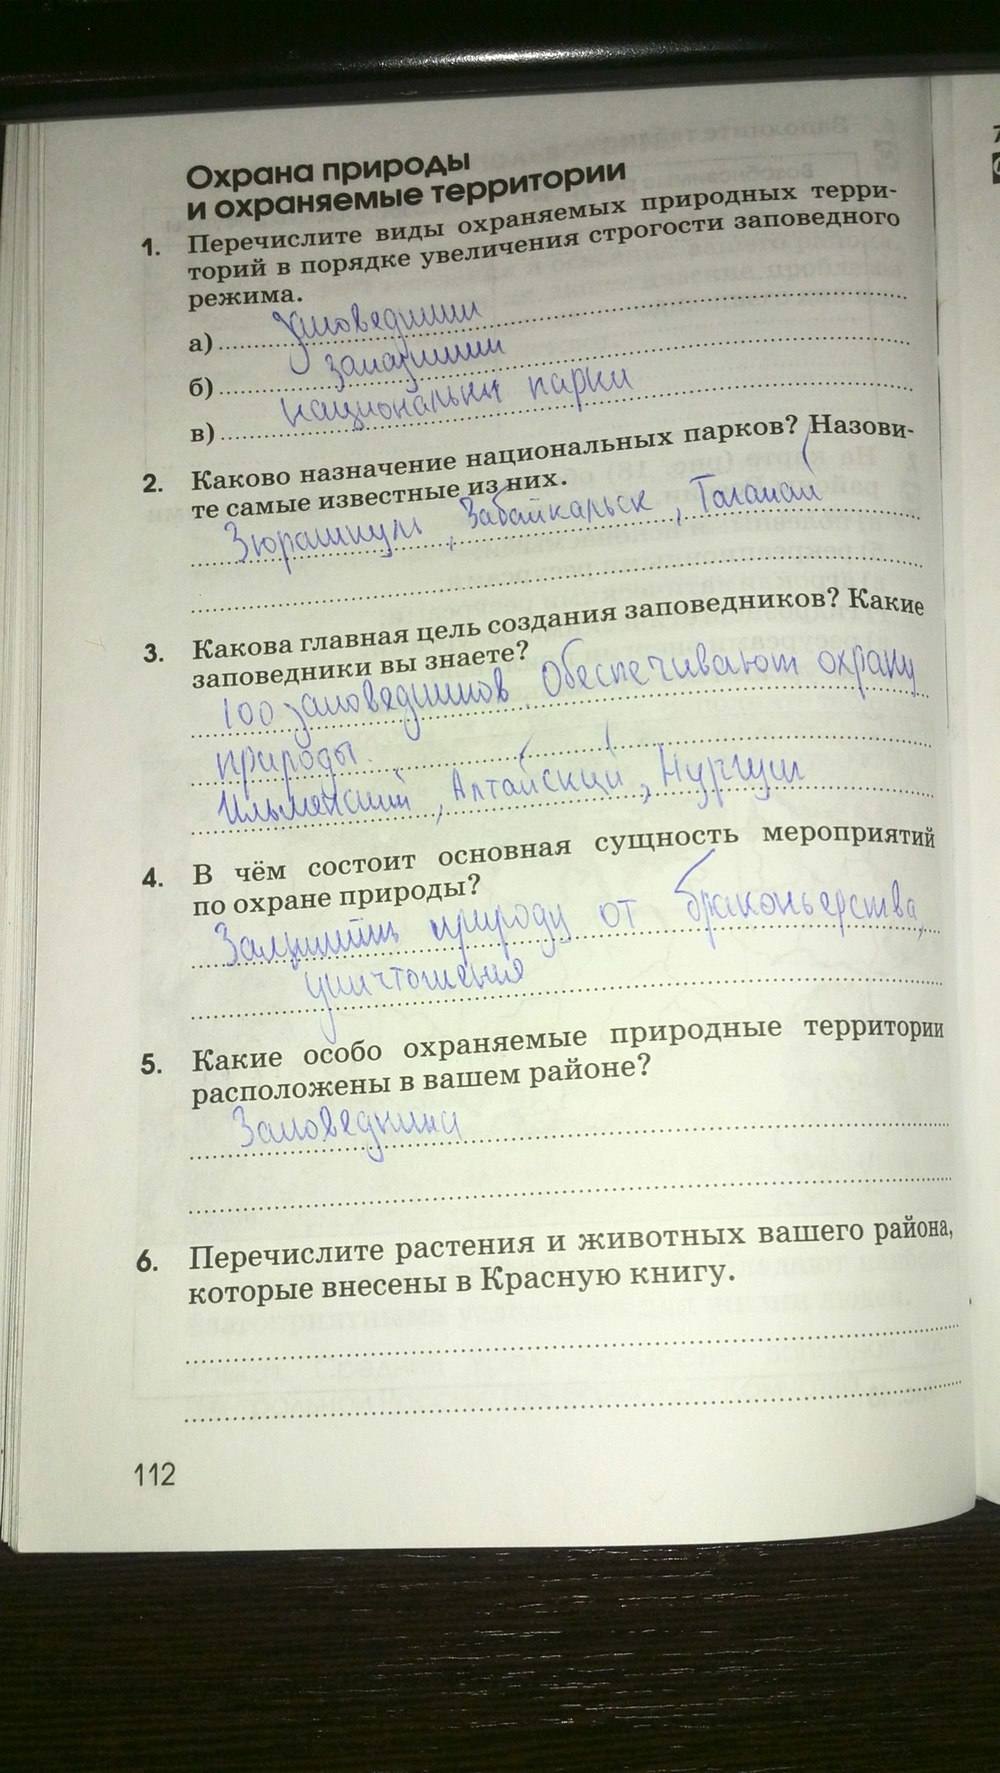 Охрана природы
и охраняемые территории
1. Перечислите виды охраняемых природных терри-
торий в порядке увеличения строгости заповедного
режима.
а) Заповедники
б) заказники
в) национальн парки
2. Каково назначение национальных парков? Назови-
те самые известные из них.
Зюраткуль, Забайкальск, Таганай
3. Какова главная цель создания заповедников? Какие
заповедники вы знаете?
100 заповедников. Обеспечивают охрану
природы.
Ильменский, Алтайский, Нургуш
4. В чём состоит основная сущность мероприятий
по охране природы?
Защитить природу от браконьерства,
уничтожения
5. Какие особо охраняемые природные территории
расположены в вашем районе?
Заповедники
6. Перечислите растения и животных вашего района,
которые внесены в Красную книгу.
112
7